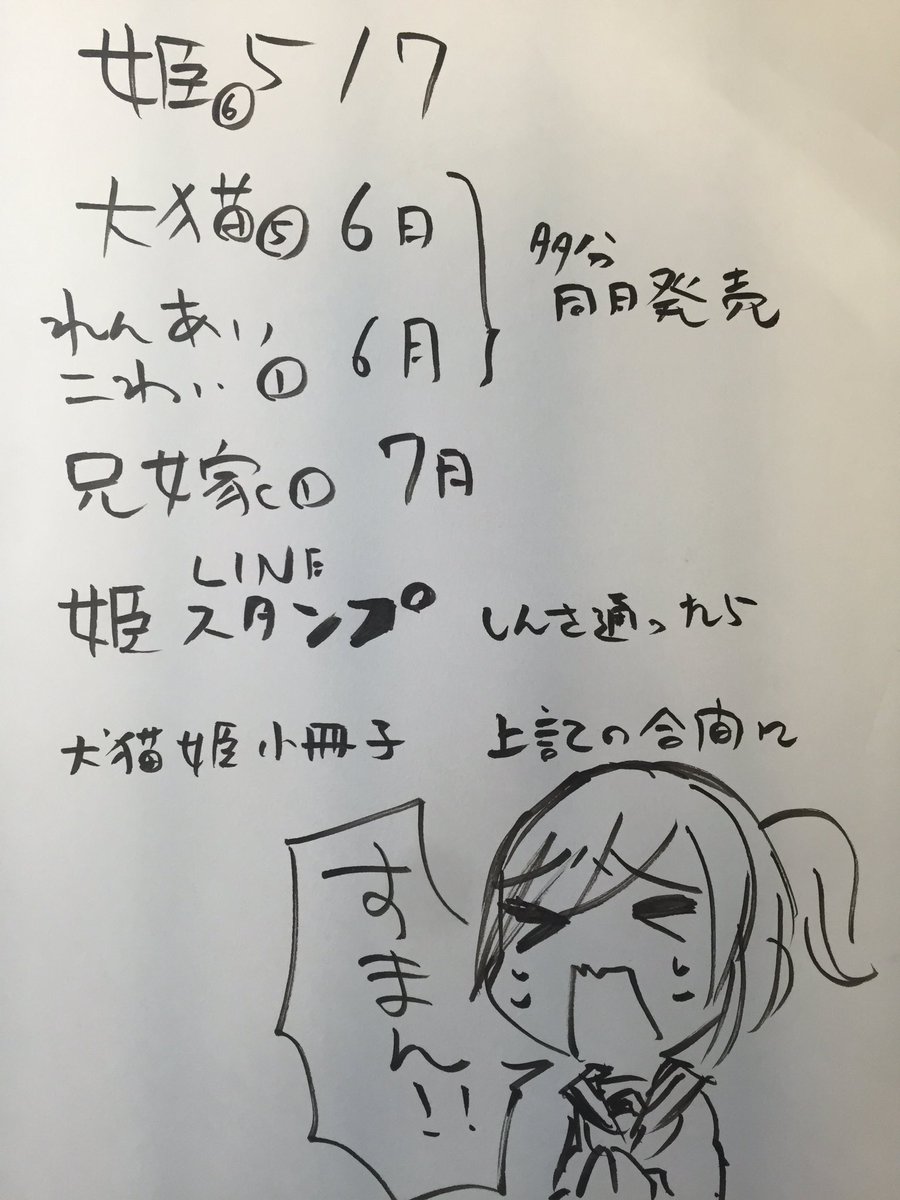 姫⑥ 5/7
犬猫⑤ 6月
れんあい
こわい① 6月
多分
同日発売
兄嫁① 7月
姫 LINE
スタンプ しんさ通ったら
犬猫姫小冊子 上記の合間に
すまん!!